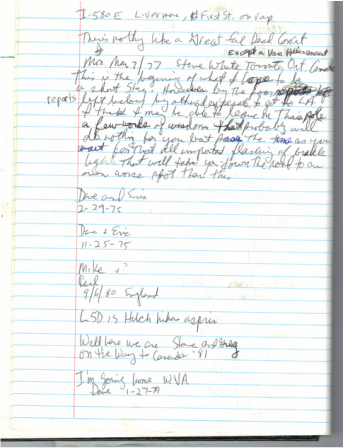 I-580 E Livermore, 1st First St. on ramp
There's nothing like a Great ful Dead Concert
Except a Van Halen concert
Mon. Mar 7/77 Steve White Toronto, Ont. Canada
This is the beginning of what I hope to be
a short stay, However by the
reports left before by other days to get to LA
I think I may be able to leave in This pole
a few words of wisdom that probably will
do nothing for you but pass the time as you
wait for that all important flashing of brake
lights That will take you down the road to an
even worse spot than this
Dave and Eric
2-29-75
Dave & Eric
11-25-75
Mike &
Paul
9/6/80 England
LSD is Hitch hikers aspirin
Well here we are Steve and Greg
on the Way to Canada '81
I'm going home WVA
Dave 1-27-79